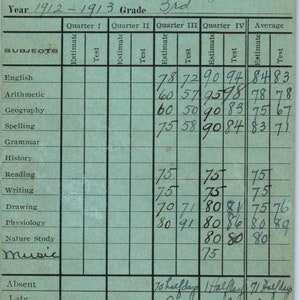 Year 1912-1913 Grade 3rd
Quarter I Quarter II Quarter III Quarter IV Average
SUBJECTS Estimate Test Estimate Test Estimate Test Estimate Test Estimate Test
English 78 72 90 94 84 83
Arithmetic 60 57 95 98 78 78
Geography 60 50 90 83 75 67
Spelling 75 58 90 84 83 71
Grammar
History
Reading 75 75 75
Writing 75 75 75
Drawing 70 71 80 81 75 76
Physiology 80 91 80 86 80 89
Nature Study 80 80 80
Music 75
Absent 70 half days 1 Half day 71 Half days
Late